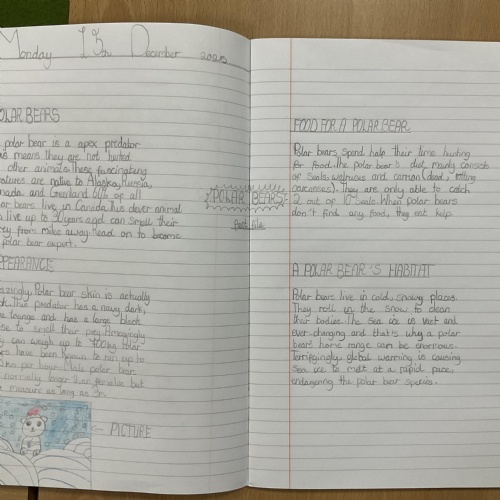 Monday 13th December 202
POLAR BEARS
polar bear is a apex predator
means they are not hunted
other animals. These fascinating
eatures are native to Alaska, Russia,
nada and Greenland. 60% of all
lar bears live in Canada. This clever animal
n live up to 30 years and can smell their
ey, from miles away. Read on to become
polar bear expert.
POLAR BEARS
fact file
PPEARANCE
azingly Polar bear skin is actually
This predator has a navy dark,
tounge and has a large black
se to smell their prey. Amazingly
y can weigh up to
have been known to run up to
per hour. Male polar bear
normally longer than females but
measure as long as 3m.
PICTURE
FOOD FOR A POLAR BEAR
Polar bears spend half their time hunting
for food. The polar bear's diet mainly consists
of seals, walruses and carrion (dead, rotting
carcasses). They are only able to catch
2 out of 10 seals. When polar bears
don't find any food, they eat kelp.
A POLAR BEAR'S HABITAT
Polar bears live in cold, snowy places.
They roll in the snow to clean
their bodies. The sea ice is vast and
ever-changing and that is why a polar
bears home range can be enormous.
Terrifyingly, global warming is causing
sea ice to melt at a rapid pace,
endangering the polar bear species.